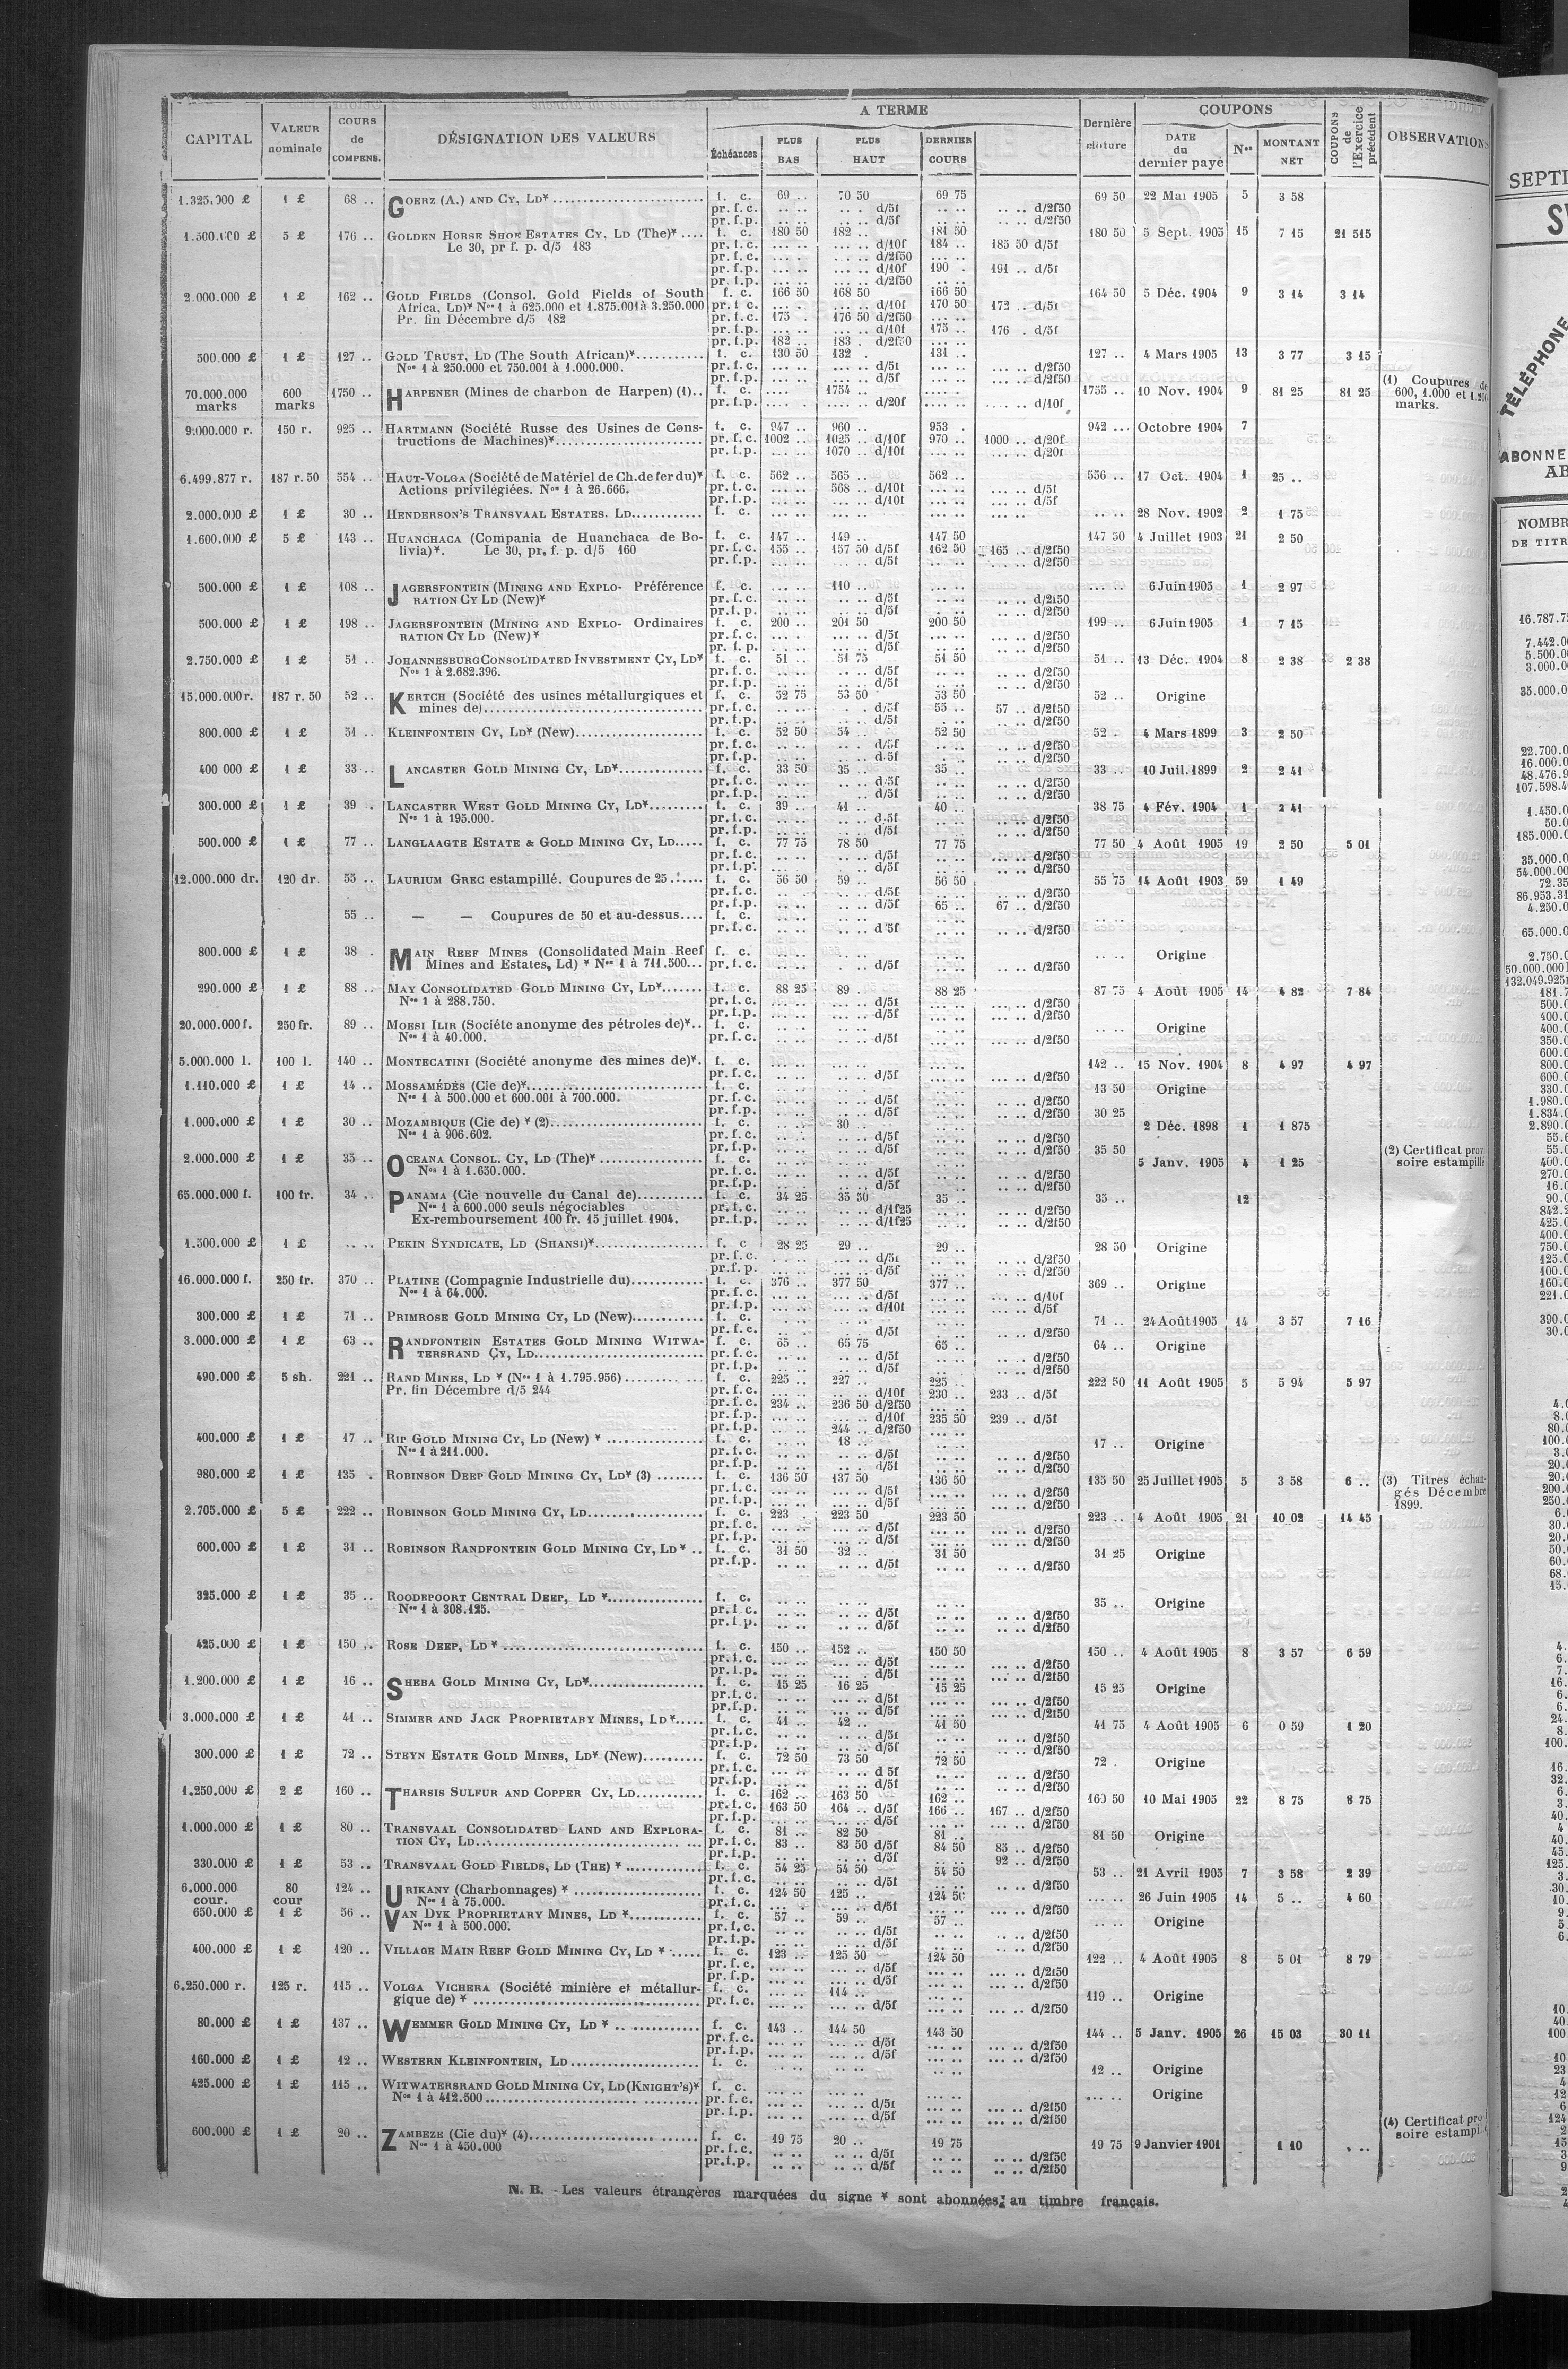 CAPITAL | VALEUR nominale | COURS de COMPENS. | DÉSIGNATION DES VALEURS | A TERME | Échéances | PLUS BAS | PLUS HAUT | DERNIER COURS | Dernière clôture | COUPONS | DATE du dernier payé | Nos | MONTANT NET | COUPONS de l'Exercice précédent | OBSERVATIONS
1.325.000 £ | 1 £ | 68 .. | GOERZ (A.) AND CY, LD* | f. c. | 69 .. | 70 50 | 69 75 | 69 50 | 22 Mai 1905 | 5 | 3 58
pr. f. c. | d/5f | d/2f50
pr. f. p. | d/5f | d/2f50
1.500.000 £ | 5 £ | 176 .. | GOLDEN HORSE SHOE ESTATES CY, LD (The)* | f. c. | 180 50 | 182 .. | 181 50 | 180 50 | 5 Sept. 1905 | 15 | 7 15 | 21 515
Le 30, pr f. p. d/5 183 | pr. f. c. | d/10f | 184 .. | 185 50 d/5f
pr. f. c. | d/2f50
pr. f. p. | d/10f | 190 . | 191 .. d/5f
pr. f. p. | d/2f50
2.000.000 £ | 1 £ | 162 .. | GOLD FIELDS (Consol. Gold Fields of South | f. c. | 166 50 | 168 50 | 166 50 | 164 50 | 5 Déc. 1904 | 9 | 3 14 | 3 14
Africa, LD)* Nos 1 à 625.000 et 1.875.001 à 3.250.000 | pr. f. c. | d/10f | 170 50 | 172 .. d/5f
Pr. fin Décembre d/5 182 | pr. f. c. | 175 . | 176 50 d/2f50
pr. f. p. | d/10f | 175 .. | 176 . d/5f
pr. f. p. | 182 .. | 183 . d/2f50
500.000 £ | 1 £ | 127 .. | GOLD TRUST, LD (The South African)* | f. c. | 130 50 | 132 . | 131 .. | 127 .. | 4 Mars 1905 | 13 | 3 77 | 3 15
Nos 1 à 250.000 et 750.001 à 1.000.000. | pr. f. c. | d/5f | d/2f50
pr. f. p. | d/5f | d/2f50
70.000.000 marks | 600 marks | 1750 .. | HARPENER (Mines de charbon de Harpen) (1) | f. c. | 1754 .. | 1755 .. | 10 Nov. 1904 | 9 | 81 25 | 81 25 | (1) Coupures de 600, 1.000 et 1.200 marks.
pr. f. p. | d/20f | d/10f
9.000.000 r. | 150 r. | 925 .. | HARTMANN (Société Russe des Usines de Cons- | f. c. | 947 .. | 960 .. | 953 . | 942 .. | Octobre 1904 | 7
tructions de Machines)* | pr. f. c. | 1002 .. | 1025 .. d/10f | 970 .. | 1000 .. d/20f
pr. f. p. | 1070 .. d/10f | d/20f
6.499.877 r. | 187 r. 50 | 554 .. | HAUT-VOLGA (Société de Matériel de Ch. de fer du)* | f. c. | 562 .. | 565 .. | 562 .. | 556 .. | 17 Oct. 1904 | 1 | 25 ..
Actions privilégiées. Nos 1 à 26.666. | pr. f. c. | 568 .. d/10f | d/5f
pr. f. p. | d/10f | d/5f
2.000.000 £ | 1 £ | 30 .. | HENDERSON'S TRANSVAAL ESTATES. LD | f. c. | 28 Nov. 1902 | 2 | 1 75
1.600.000 £ | 5 £ | 143 .. | HUANCHACA (Compania de Huanchaca de Bo- | f. c. | 147 .. | 149 .. | 147 50 | 147 50 | 4 Juillet 1903 | 21 | 2 50
livia)*. Le 30, pr. f. p. d/5 160 | pr. f. c. | 155 .. | 157 50 d/5f | 162 50 | 165 .. d/2f50
pr. f. p. | d/5f | d/2f50
500.000 £ | 1 £ | 108 .. | JAGERSFONTEIN (MINING AND EXPLO- Préférence | f. c. | 110 .. | 6 Juin 1905 | 1 | 2 97
RATION CY LD (New)* | pr. f. c. | d/5f | d/2f50
pr. f. p. | d/5f | d/2f50
500.000 £ | 1 £ | 198 .. | JAGERSFONTEIN (MINING AND EXPLO- Ordinaires | f. c. | 200 .. | 201 50 | 200 50 | 199 .. | 6 Juin 1905 | 1 | 7 15
RATION CY LD (New)* | pr. f. c. | d/5f | d/2f50
pr. f. p. | d/5f | d/2f50
2.750.000 £ | 1 £ | 51 .. | JOHANNESBURG CONSOLIDATED INVESTMENT CY, LD* | f. c. | 51 .. | 51 75 | 51 50 | 51 .. | 13 Déc. 1904 | 8 | 2 38 | 2 38
Nos 1 à 2.682.396. | pr. f. c. | d/5f | d/2f50
pr. f. p. | d/5f | d/2f50
15.000.000 r. | 187 r. 50 | 52 .. | KERTCH (Société des usines métallurgiques et | f. c. | 52 75 | 53 50 | 53 50 | 52 .. | Origine
mines de) | pr. f. c. | d/5f | 55 .. | 57 .. d/2f50
pr. f. p. | d/5f | d/2f50
800.000 £ | 1 £ | 51 .. | KLEINFONTEIN CY, LD* (New) | f. c. | 52 50 | 54 .. | 52 50 | 52 . | 4 Mars 1899 | 3 | 2 50
pr. f. c. | d/5f | d/2f50
pr. f. p. | d/5f | d/2f50
400 000 £ | 1 £ | 33 .. | LANCASTER GOLD MINING CY, LD* | f. c. | 33 50 | 35 .. | 35 .. | 33 .. | 10 Juil. 1899 | 2 | 2 41
pr. f. c. | d/5f | d/2f50
pr. f. p. | d/5f | d/2f50
300.000 £ | 1 £ | 39 . | LANCASTER WEST GOLD MINING CY, LD* | f. c. | 39 .. | 41 .. | 40 .. | 38 75 | 4 Fév. 1904 | 1 | 2 41
Nos 1 à 195.000. | pr. f. c. | d/5f | d/2f50
pr. f. p. | d/5f | d/2f50
500.000 £ | 1 £ | 77 .. | LANGLAAGTE ESTATE & GOLD MINING CY, LD | f. c. | 77 75 | 78 50 | 77 75 | 77 50 | 4 Août 1905 | 19 | 2 50 | 5 01
pr. f. c. | d/5f | d/2f50
pr. f. p. | d/5f | d/2f50
12.000.000 dr. | 120 dr. | 55 .. | LAURIUM GREC estampillé. Coupures de 25 | f. c. | 56 50 | 59 .. | 56 50 | 55 75 | 14 Août 1903 | 59 | 1 49
pr. f. c. | d/5f | d/2f50
pr. f. p. | d/5f | 65 .. | 67 .. d/2f50
55 .. | — — Coupures de 50 et au-dessus | f. c.
pr. f. c. | d/5f | d/2f50
800.000 £ | 1 £ | 38 . | MAIN REEF MINES (Consolidated Main Reef | f. c. | Origine
Mines and Estates, Ld) * Nos 1 à 711.500 | pr. f. c. | d/5f | d/2f50
290.000 £ | 1 £ | 88 .. | MAY CONSOLIDATED GOLD MINING CY, LD* | f. c. | 88 25 | 89 .. | 88 25 | 87 75 | 4 Août 1905 | 14 | 4 82 | 7 84
Nos 1 à 288.750. | pr. f. c. | d/5f | d/2f50
pr. f. p. | d/5f | d/2f50
20.000.000 f. | 250 fr. | 89 .. | MOESI ILIR (Société anonyme des pétroles de)* | f. c. | Origine
Nos 1 à 40.000. | pr. f. c. | d/5f | d/2f50
5.000.000 l. | 100 l. | 140 .. | MONTECATINI (Société anonyme des mines de)*. | f. c. | 142 .. | 15 Nov. 1904 | 8 | 4 97 | 4 97
pr. f. c. | d/5f | d/2f50
1.110.000 £ | 1 £ | 14 .. | MOSSAMÉDÈS (Cie de)* | f. c. | 13 50 | Origine
Nos 1 à 500.000 et 600.001 à 700.000. | pr. f. c. | d/5f | d/2f50
pr. f. p. | d/5f | d/2f50
1.000.000 £ | 1 £ | 30 .. | MOZAMBIQUE (Cie de) * (2) | f. c. | 30 . | 30 25 | 2 Déc. 1898 | 1 | 1 875
Nos 1 à 906.602. | pr. f. c. | d/5f | d/2f50
pr. f. p. | d/5f | d/2f50
2.000.000 £ | 1 £ | 35 .. | OCEANA CONSOL. CY, LD (The)* | f. c. | 35 50 | 5 Janv. 1905 | 4 | 1 25 | (2) Certificat provi soire estampillé
Nos 1 à 1.650.000. | pr. f. c. | d/5f | d/2f50
pr. f. p. | d/5f | d/2f50
65.000.000 f. | 100 fr. | 34 .. | PANAMA (Cie nouvelle du Canal de) | f. c. | 34 25 | 35 50 | 35 .. | 35 .. | 12
Nos 1 à 600.000 seuls négociables | pr. f. c. | d/1f25 | d/2f50
Ex-remboursement 100 fr. 15 juillet 1904. | pr. f. p. | d/1f25 | d/2f50
1.500.000 £ | 1 £ | .. .. | PEKIN SYNDICATE, LD (SHANSI)* | f. c | 28 25 | 29 .. | 29 .. | 28 50 | Origine
pr. f. c. | d/5f | d/2f50
pr. f. p. | d/5f | d/2f50
16.000.000 f. | 250 fr. | 370 .. | PLATINE (Compagnie Industrielle du) | f. c. | 376 .. | 377 50 | 377 .. | 369 .. | Origine
Nos 1 à 64.000. | pr. f. c. | d/5f | d/10f
pr. f. p. | d/10f | d/5f
300.000 £ | 1 £ | 71 .. | PRIMROSE GOLD MINING CY, LD (New) | f. c. | 71 .. | 24 Août 1905 | 14 | 3 57 | 7 16
pr. f. c. | d/5f | d/2f50
3.000.000 £ | 1 £ | 63 .. | RANDFONTEIN ESTATES GOLD MINING WITWA- | f. c. | 65 .. | 65 75 | 65 .. | 64 .. | Origine
TERSRAND CY, LD | pr. f. c. | d/5f | d/2f50
pr. f. p. | d/5f | d/2f50
490.000 £ | 5 sh. | 221 .. | RAND MINES, LD * (Nos 1 à 1.795.956) | f. c. | 225 .. | 227 .. | 225 .. | 222 50 | 11 Août 1905 | 5 | 5 94 | 5 97
Pr. fin Décembre d/5 244 | pr. f. c. | d/10f | 230 .. | 233 .. d/5f
pr. f. c. | 234 .. | 236 50 d/2f50
pr. f. p. | d/10f | 235 50 | 239 .. d/5f
pr. f. p. | 244 .. d/2f50
400.000 £ | 1 £ | 17 .. | RIP GOLD MINING CY, LD (New) * | f. c. | 18 .. | 17 .. | Origine
Nos 1 à 211.000. | pr. f. c. | d/5f | d/2f50
pr. f. p. | d/5f | d/2f50
980.000 £ | 1 £ | 135 . | ROBINSON DEEP GOLD MINING CY, LD* (3) | f. c. | 136 50 | 137 50 | 136 50 | 135 50 | 25 Juillet 1905 | 5 | 3 58 | 6 .. | (3) Titres échan- gés Décembre 1899.
pr. f. c. | d/5f | d/2f50
pr. f. p. | d/5f | d/2f50
2.705.000 £ | 5 £ | 222 .. | ROBINSON GOLD MINING CY, LD | f. c. | 223 . | 223 50 | 223 50 | 223 .. | 4 Août 1905 | 21 | 10 02 | 14 45
pr. f. c. | d/5f | d/2f50
pr. f. p. | d/5f | d/2f50
600.000 £ | 1 £ | 31 .. | ROBINSON RANDFONTEIN GOLD MINING CY, LD * | f. c. | 31 50 | 32 .. | 31 50 | 31 25 | Origine
pr. f. p. | d/5f | d/2f50
325.000 £ | 1 £ | 35 .. | ROODEPOORT CENTRAL DEEP, LD * | f. c. | 35 .. | Origine
Nos 1 à 308.125. | pr. f. c. | d/5f | d/2f50
pr. f. p. | d/5f | d/2f50
425.000 £ | 1 £ | 150 .. | ROSE DEEP, LD * | f. c. | 150 .. | 152 .. | 150 50 | 150 .. | 4 Août 1905 | 8 | 3 57 | 6 59
pr. f. c. | d/5f | d/2f50
pr. f. p. | d/5f | d/2f50
1.200.000 £ | 1 £ | 16 .. | SHEBA GOLD MINING CY, LD* | f. c. | 15 25 | 16 25 | 15 25 | 15 25 | Origine
pr. f. c. | d/5f | d/2f50
pr. f. p. | d/5f | d/2f50
3.000.000 £ | 1 £ | 41 .. | SIMMER AND JACK PROPRIETARY MINES, LD* | f. c. | 41 .. | 42 .. | 41 50 | 41 75 | 4 Août 1905 | 6 | 0 59 | 1 20
pr. f. c. | d/5f | d/2f50
pr. f. p. | d/5f | d/2f50
300.000 £ | 1 £ | 72 .. | STEYN ESTATE GOLD MINES, LD* (New) | f. c. | 72 50 | 73 50 | 72 50 | 72 . | Origine
pr. f. c. | d 5f | d/2f50
pr. f. p. | d/5f | d/2f50
1.250.000 £ | 2 £ | 160 .. | THARSIS SULFUR AND COPPER CY, LD | f. c. | 162 .. | 163 50 | 162 .. | 160 50 | 10 Mai 1905 | 22 | 8 75 | 8 75
pr. f. c. | 163 50 | 164 .. d/5f | 166 .. | 167 .. d/2f50
pr. f. p. | d/5f | d/2f50
1.000.000 £ | 1 £ | 80 .. | TRANSVAAL CONSOLIDATED LAND AND EXPLORA- | f. c. | 81 .. | 82 50 | 81 .. | 81 50 | Origine
TION CY, LD | pr. f. c. | 83 .. | 83 50 d/5f | 84 50 | 85 .. d/2f50
pr. f. p. | d/5f | 92 .. d/2f50
330.000 £ | 1 £ | 53 .. | TRANSVAAL GOLD FIELDS, LD (THE) * | f. c. | 54 25 | 54 50 | 54 50 | 53 .. | 21 Avril 1905 | 7 | 3 58 | 2 39
pr. f. c. | d/5f | d/2f50
6.000.000 cour. | 80 cour | 124 .. | URIKANY (Charbonnages) * | f. c. | 124 50 | 125 .. | 124 50 | 26 Juin 1905 | 14 | 5 .. | 4 60
Nos 1 à 75.000. | pr. f. c. | d/5f | d/2f50
650.000 £ | 1 £ | 56 .. | VAN DYK PROPRIETARY MINES, LD * | f. c. | 57 .. | 59 .. | 57 .. | Origine
Nos 1 à 500.000. | pr. f. c. | d/5f | d/2f50
pr. f. p. | d/5f | d/2f50
400.000 £ | 1 £ | 120 .. | VILLAGE MAIN REEF GOLD MINING CY, LD * | f. c. | 123 .. | 125 50 | 124 50 | 122 .. | 4 Août 1905 | 8 | 5 01 | 8 79
pr. f. c. | d/5f | d/2f50
pr. f. p. | d/5f | d/2f50
6.250.000 r. | 125 r. | 115 .. | VOLGA VICHERA (Société minière et métallur- | f. c. | 114 .. | 119 .. | Origine
gique de) * | pr. f. c. | d/5f | d/2f50
80.000 £ | 1 £ | 137 .. | WEMMER GOLD MINING CY, LD * | f. c. | 143 .. | 144 50 | 143 50 | 144 .. | 5 Janv. 1905 | 26 | 15 03 | 30 11
pr. f. c. | d/5f | d/2f50
pr. f. p. | d/5f | d/2f50
160.000 £ | 1 £ | 12 .. | WESTERN KLEINFONTEIN, LD | f. c. | 12 .. | Origine
425.000 £ | 1 £ | 115 .. | WITWATERSRAND GOLD MINING CY, LD (KNIGHT'S)* | f. c. | Origine
Nos 1 à 412.500 | pr. f. c. | d/5f | d/2f50
pr. f. p. | d/5f | d/2f50
600.000 £ | 1 £ | 20 .. | ZAMBEZE (Cie du)* (4) | f. c. | 19 75 | 20 .. | 19 75 | 19 75 | 9 Janvier 1901 | 1 10 | (4) Certificat provi soire estampillé
Nos 1 à 450.000 | pr. f. c. | d/5f | d/2f50
pr. f. p. | d/5f | d/2f50
N. B. - Les valeurs étrangères marquées du signe * sont abonnées au timbre français.
SEPTI
TÉLÉPHONE
ABONNE
NOMBR
DE TITR